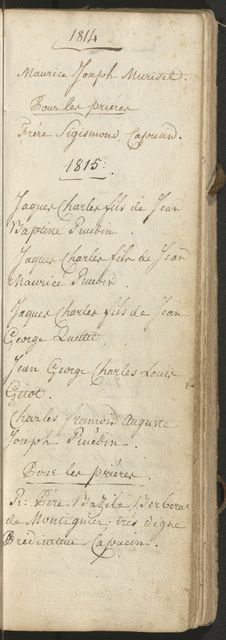 1814
Maurice Joseph Muriset.
Pour les prières
Frére Sigismond, Capucin.
1815:
Jaques Charles fils de Jean
Baptiste Ruedin.
Jaques Charles fils de Jean
Maurice Ruedin.
Jaques Charles fils de Jean
George Quellet.
Jean George Charles Louis
Girot.
Charles François Auguste
Joseph Ruédin.
Pour les prières.
R: Père Bazile
de Montignier, très digne
Prédicateur Capucin.